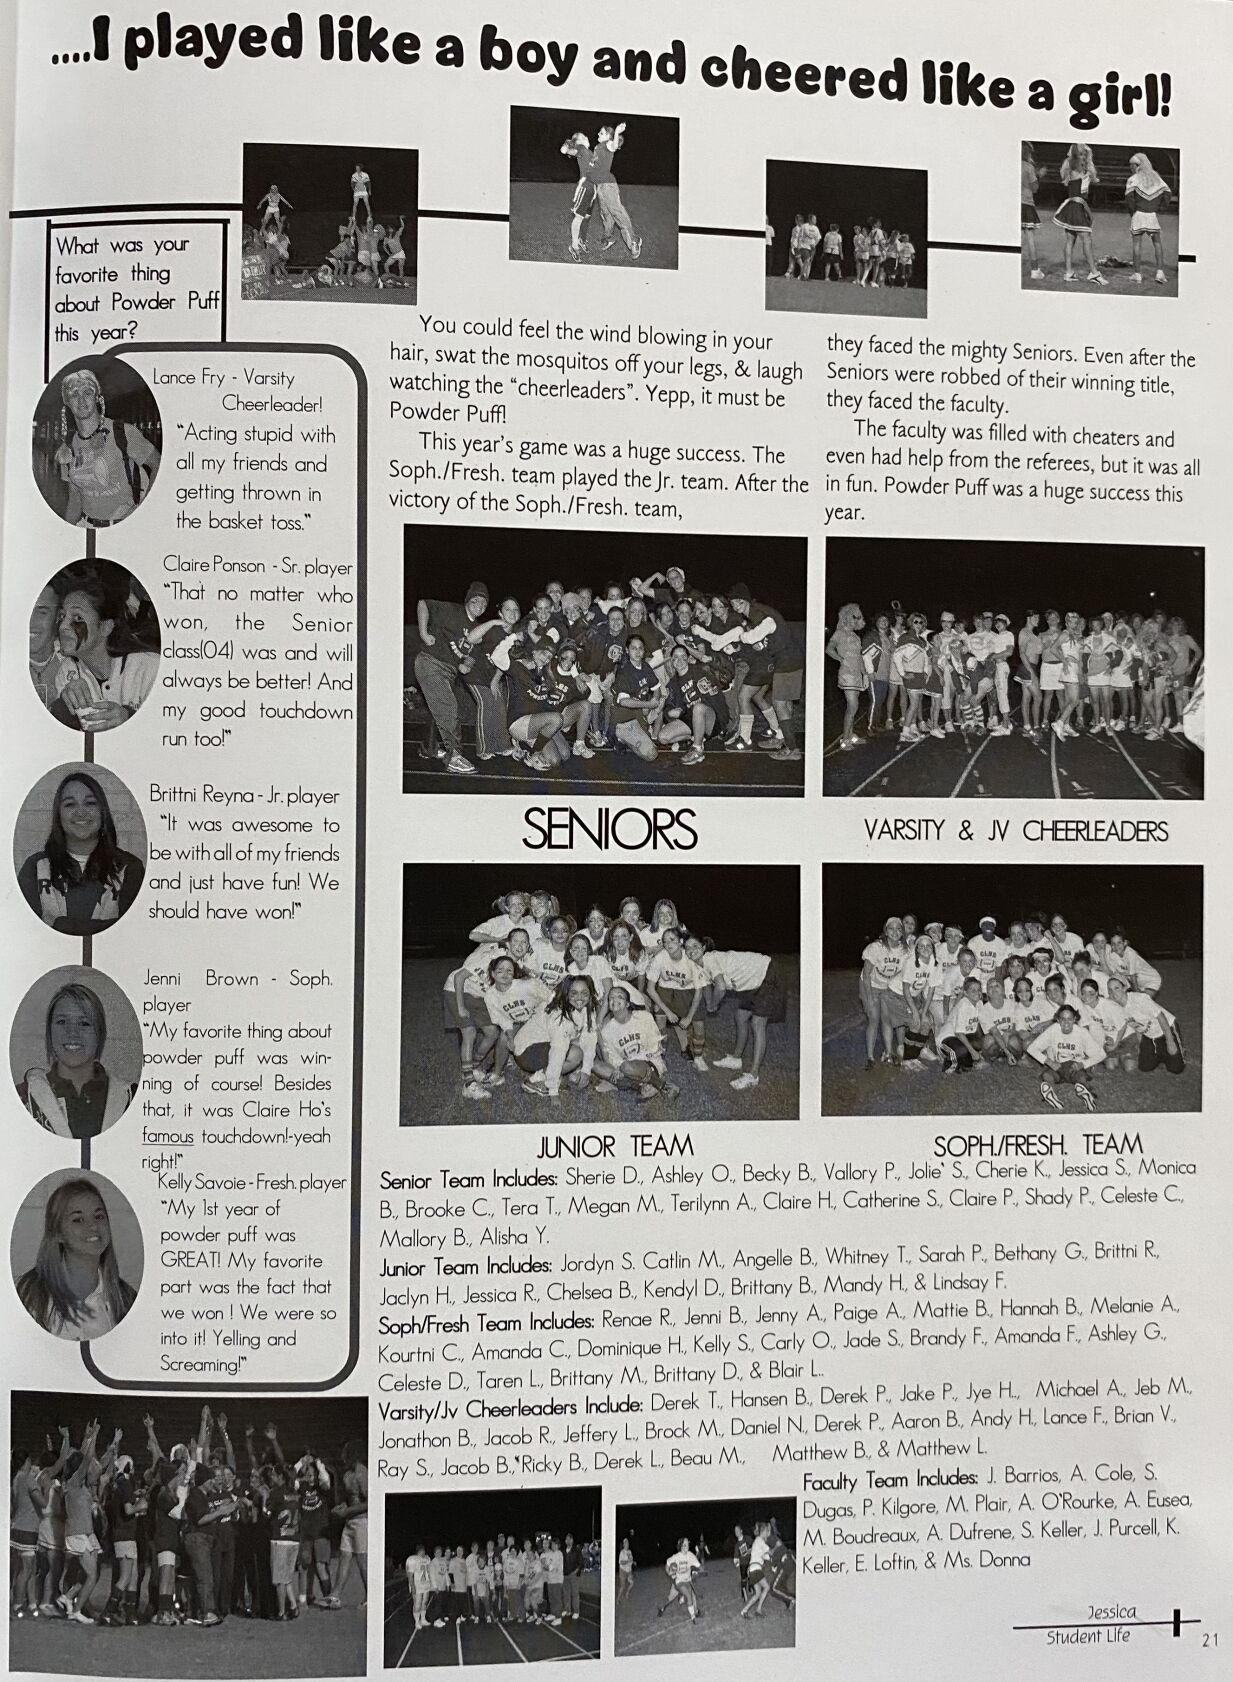 ....I played like a boy and cheered like a girl!
What was your
favorite thing
about Powder Puff
this year?
Lance Fry - Varsity
Cheerleader!
"Acting stupid with
all my friends and
getting thrown in
the basket toss."
Claire Ponson - Sr. player
"That no matter who
won, the Senior
class(04) was and will
always be better! And
my good touchdown
run too!"
Brittni Reyna - Jr. player
"It was awesome to
be with all of my friends
and just have fun! We
should have won!"
Jenni Brown - Soph.
player
"My favorite thing about
powder puff was win-
ning of course! Besides
that, it was Claire Ho's
famous touchdown!-yeah
right!"
Kelly Savoie - Fresh. player
"My 1st year of
powder puff was
GREAT! My favorite
part was the fact that
we won ! We were so
into it! Yelling and
Screaming!"
You could feel the wind blowing in your
hair, swat the mosquitos off your legs, & laugh
watching the "cheerleaders". Yepp, it must be
Powder Puff!
This year's game was a huge success. The
Soph./Fresh. team played the Jr. team. After the
victory of the Soph./Fresh. team,
they faced the mighty Seniors. Even after the
Seniors were robbed of their winning title,
they faced the faculty.
The faculty was filled with cheaters and
even had help from the referees, but it was all
in fun. Powder Puff was a huge success this
year.
SENIORS
VARSITY & JV CHEERLEADERS
JUNIOR TEAM
SOPH./FRESH. TEAM
Senior Team Includes: Sherie D., Ashley O., Becky B., Vallory P., Jolie' S., Cherie K., Jessica S., Monica
B., Brooke C., Tera T., Megan M., Terilynn A., Claire H., Catherine S., Claire P., Shady P., Celeste C.,
Mallory B., Alisha Y.
Junior Team Includes: Jordyn S. Catlin M., Angelle B., Whitney T., Sarah P., Bethany G., Brittni R.,
Jaclyn H., Jessica R., Chelsea B., Kendyl D., Brittany B., Mandy H., & Lindsay F.
Soph/Fresh Team Includes: Renae R., Jenni B., Jenny A., Paige A., Mattie B., Hannah B., Melanie A.,
Kourtni C., Amanda C., Dominique H., Kelly S., Carly O., Jade S., Brandy F., Amanda F., Ashley G.,
Celeste D., Taren L., Brittany M., Brittany D., & Blair L..
Varsity/Jv Cheerleaders Include: Derek T., Hansen B., Derek P., Jake P., Jye H., Michael A., Jeb M.,
Jonathon B., Jacob R., Jeffery L., Brock M., Daniel N., Derek P., Aaron B., Andy H., Lance F., Brian V.,
Ray S., Jacob B., Ricky B., Derek L., Beau M., Matthew B., & Matthew L.
Faculty Team Includes: J. Barrios, A. Cole, S.
Dugas, P. Kilgore, M. Plair, A. O'Rourke, A. Eusea,
M. Boudreaux, A. Dufrene, S. Keller, J. Purcell, K.
Keller, E. Loftin, & Ms. Donna
Jessica
Student Life
21